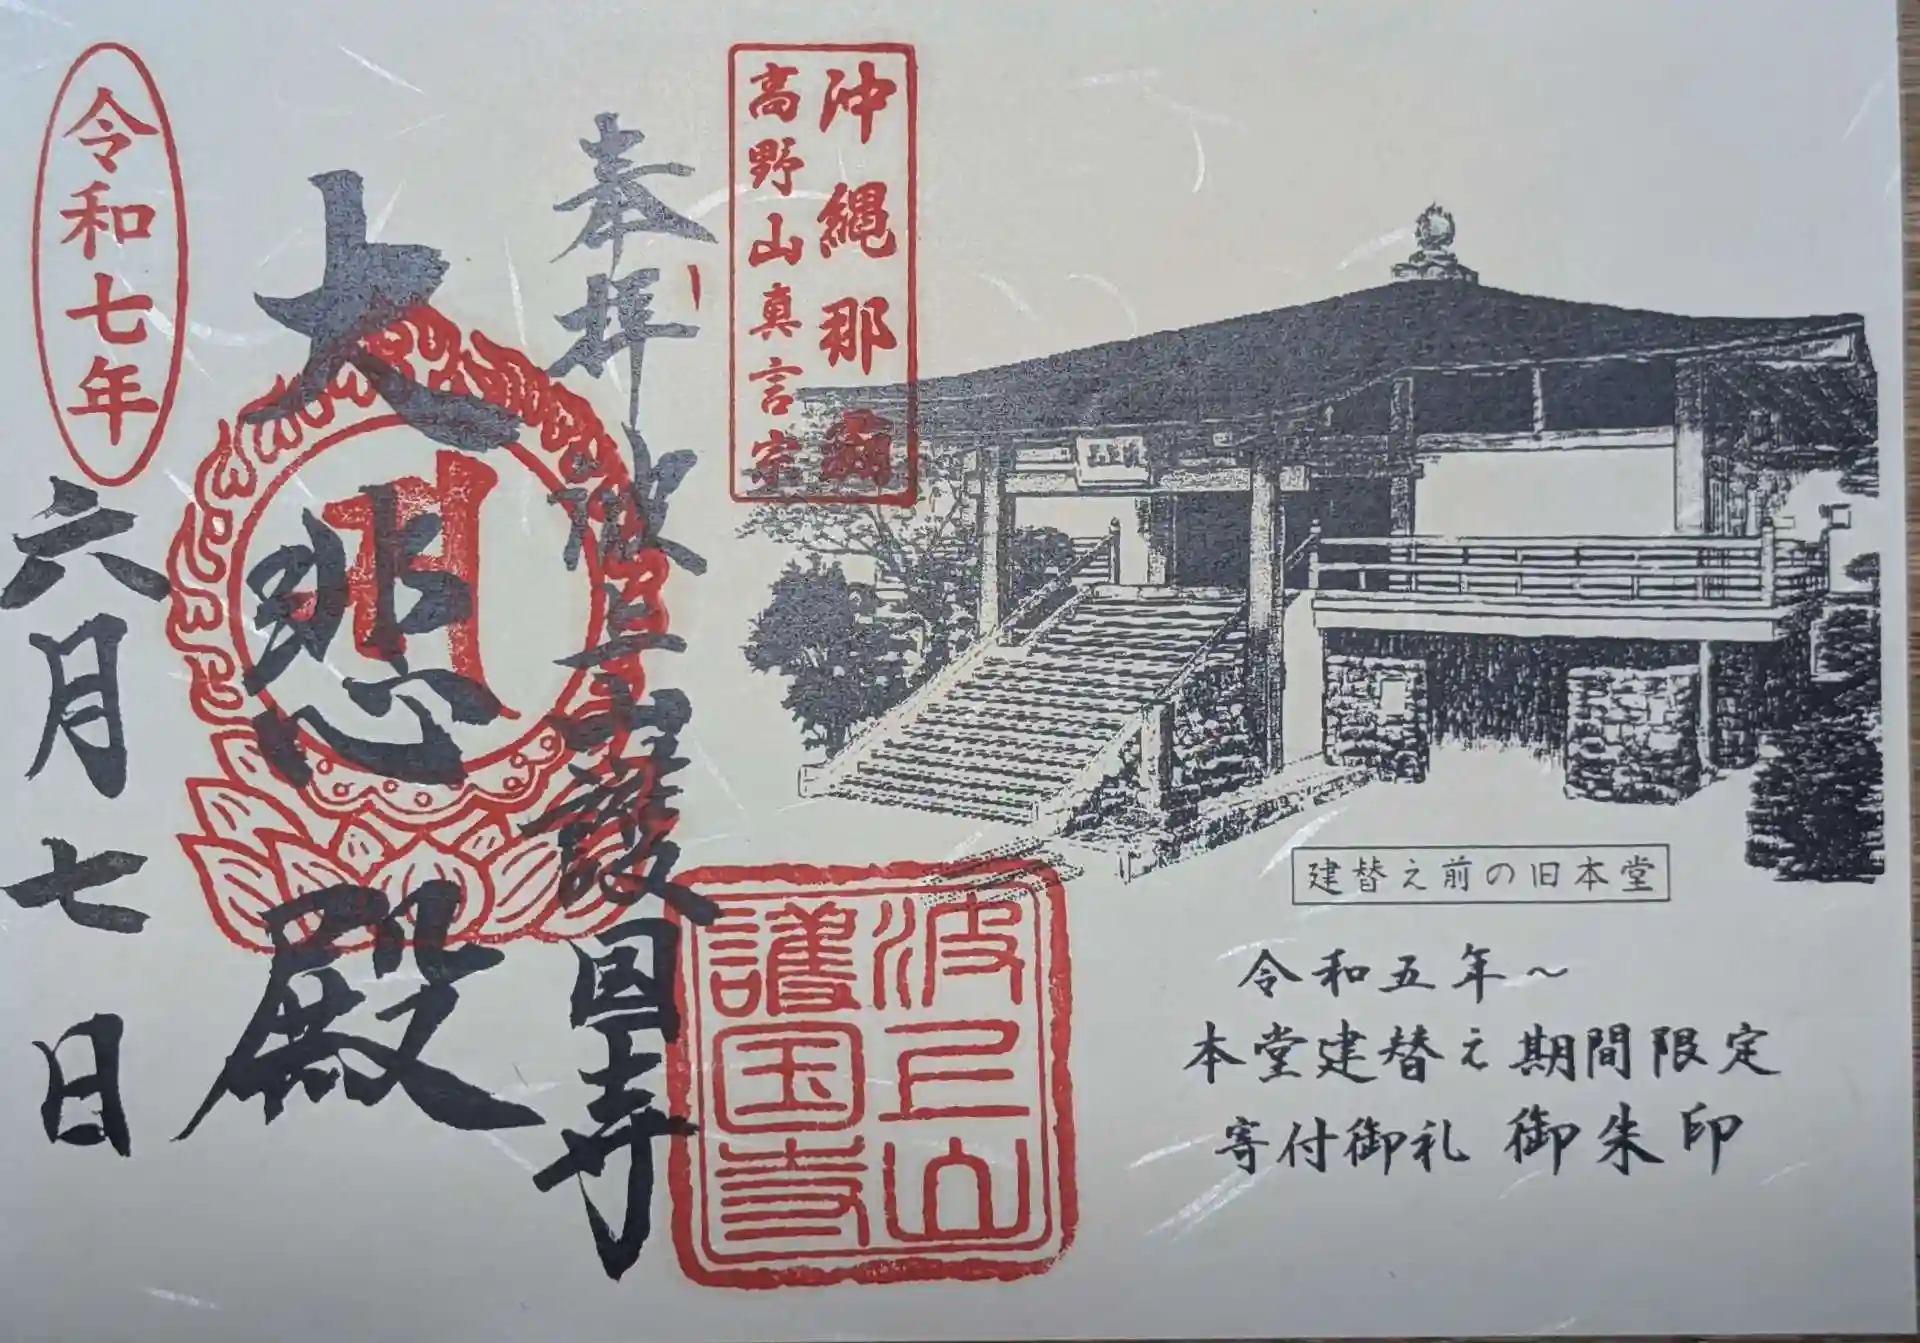 沖縄那覇
高野山真言宗
奉拝
波上山護国寺
大悲殿
令和七年
六月七日
波上山
護国寺
建替え前の旧本堂
令和五年～
本堂建替え期間限定
寄付御礼 御朱印